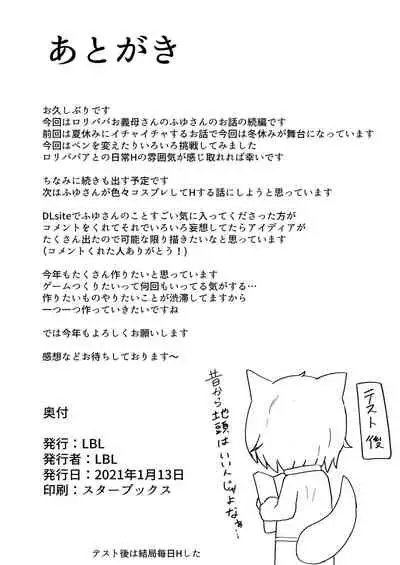 あとがき
お久しぶりです
今回はロリババお義母さんのふゆさんのお話の続編です
前回は夏休みにイチャイチャするお話で今回は冬休みが舞台になっています
今回はペンを変えたりいろいろ挑戦してみました
ロリババアとの日常Hの雰囲気が感じ取れれば幸いです
ちなみに続きも出す予定です
次はふゆさんが色々コスプレしてHする話にしようと思っています
DLsiteでふゆさんのことすごい気に入ってくださった方が
コメントをくれてそれでいろいろ妄想してたらアイディアが
たくさん出たので可能な限り描きたいなと思っています
(コメントくれた人ありがとう!)
今年もたくさん作りたいと思っています
ゲームつくりたいって何回もいってる気がする…
作りたいものやりたいことが渋滞してますから
一つ一つ作っていきたいですね
では今年もよろしくお願いします
感想などお待ちしております～
テスト後
昔から地頭はいいんじゃよなぁ…
奥付
発行：LBL
発行者：LBL
発行日：2021年1月13日
印刷：スターブックス
テスト後は結局毎日Hした